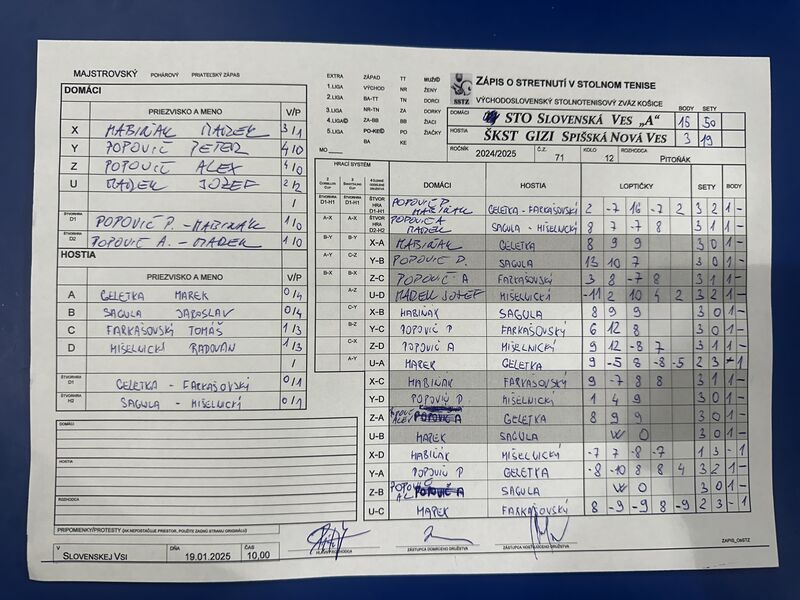 MAJSTROVSKÝ POHÁROVÝ PRIATEĽSKÝ ZÁPAS
DOMÁCI
PRIEZVISKO A MENO V/P
X HABIŇÁK MAREK 3/1
Y POPOVIČ PETER 4/0
Z POPOVIČ ALEX 4/0
U MAREK JOZEF 2/2
/
ŠTVORH D1 POPOVIČ P. - HABIŇÁK 1/0
ŠTVORH D2 POPOVIČ A. - MAREK 1/0
HOSTIA
PRIEZVISKO A MENO V/P
A GELETKA MAREK 0/4
B SAGULA JAROSLAV 0/4
C FARKAŠOVSKÝ TOMÁŠ 1/3
D MIŠELNICKÝ RADOVAN 1/3
/
GELETKA - FARKAŠOVSKÝ 0/1
ŠTVORH H2 SAGULA - MIŠELNICKÝ 0/1
DOMÁCI
HOSTIA
ROZHODCA
PRIPOMIENKY/PROTESTY (AK NEPOSTAČUJE PRIESTOR, POUŽITE ZADNÚ STRANU ORIGINÁLU)
V SLOVENSKEJ VSI DŇA 19.01.2025 ČAS 10,00
EXTRA ZÁPAD TT MUŽI
1.LIGA VÝCHOD NR ŽENY
2.LIGA BA-TT TN DORCI
3.LIGA NR-TN ZA DORKY
4.LIGA ZA-BB BB ŽIACI
5.LIGA PO-KE PO ŽIAČKY
BA KE
MO
SSTZ
ZÁPIS O STRETNUTÍ V STOLNOM TENISE
VÝCHODOSLOVENSKÝ STOLNOTENISOVÝ ZVÄZ KOŠICE
BODY SETY
DOMÁCI STO SLOVENSKÁ VES „A" 15 50
HOSTIA ŠKST GIZI SPIŠSKÁ NOVÁ VES 3 19
ROČNÍK 2024/2025 Č.Z. 71 KOLO 12 ROZHODCA PITOŇÁK
HRACÍ SYSTÉM
DOMÁCI HOSTIA LOPTIČKY SETY BODY
ŠTVOR HRA D1-H1 POPOVIČ P. HABIŇÁK GELETKA-FARKAŠOVSKÝ 2 -7 16 -7 2 3 2 1 -
ŠTVOR HRA D2-H2 POPOVIČ A MAREK SAGULA-MIŠELNICKÝ 8 7 -7 8 3 1 1 -
X-A HABIŇÁK GELETKA 8 9 9 3 0 1 -
Y-B POPOVIČ P. SAGULA 13 10 7 3 0 1 -
Z-C POPOVIČ A FARKAŠOVSKÝ 3 8 -7 8 3 1 1 -
U-D MAREK JOZEF MIŠELNICKÝ -11 2 10 4 2 3 2 1 -
X-B HABIŇÁK SAGULA 8 9 9 3 0 1 -
Y-C POPOVIČ P FARKAŠOVSKÝ 6 12 8 3 0 1 -
Z-D POPOVIČ A MIŠELNICKÝ 9 12 -8 7 3 1 1 -
U-A MAREK GELETKA 9 -5 8 -8 -5 2 3 1
X-C HABIŇÁK FARKAŠOVSKÝ 9 -7 8 8 3 1 1 -
Y-D POPOVIČ P MIŠELNICKÝ 1 4 9 3 0 1 -
Z-A POPOVIČ ALEX GELETKA 8 9 9 3 0 1 -
U-B MAREK SAGULA W O 3 0 1 -
X-D HABIŇÁK MIŠELNICKÝ -7 7 -8 -7 1 3 - 1
Y-A POPOVIČ P GELETKA -8 -10 8 8 4 3 2 1 -
Z-B POPOVIČ AL SAGULA W O 3 0 1 -
U-C MAREK FARKAŠOVSKÝ 8 -9 -9 8 -9 2 3 - 1
HLAVNÝ ROZHODCA ZÁSTUPCA DOMÁCEHO DRUŽSTVA ZÁSTUPCA HOSŤUJÚCEHO DRUŽSTVA
ZAPIS_OBSTZ